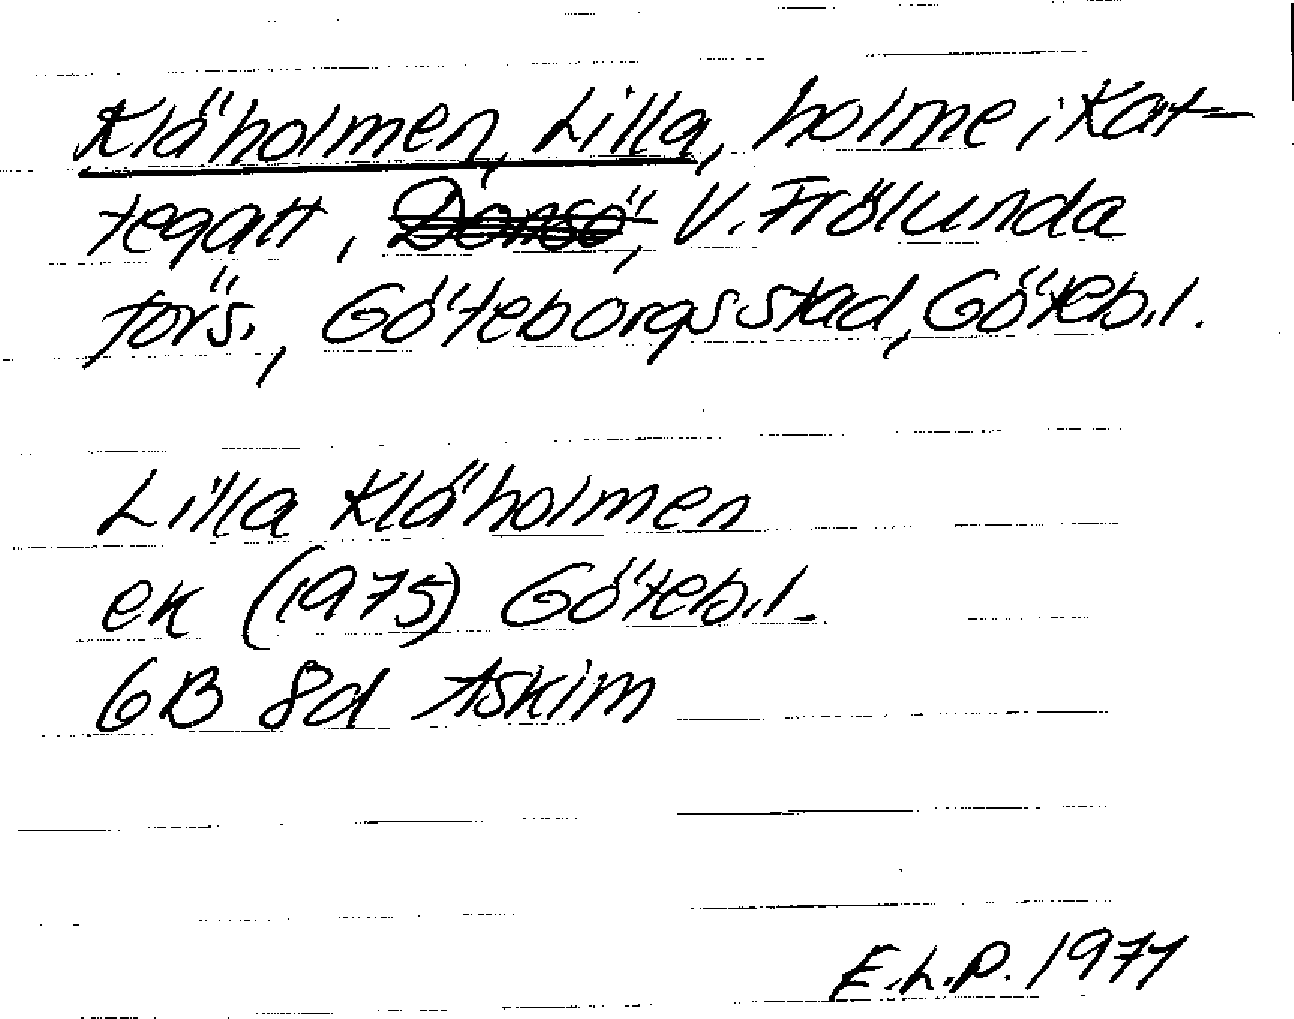 Kläholmen, Lilla, holme i Kat-
tegatt, Donsö, V. Frölunda
förs., Göteborgs stad, Göteb.l.
Lilla Kläholmen
ek (1975) Göteb.l.
6B 8d Askim
E.L.P. 1977